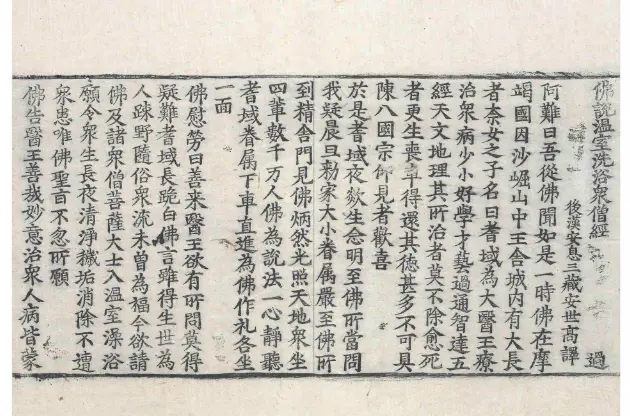 佛說溫室洗浴衆僧經
後漢安息三藏安世高譯 過
阿難曰吾從佛聞如是一時佛在摩
竭國因沙崛山中王舍城內有大長
者柰女之子名曰耆域爲大醫王療
治衆病少小好學才藝過通智達五
經天文地理其所治者莫不除愈死
者更生喪車得還其德甚多不可具
陳八國宗仰見者歡喜
於是耆域夜欻生念明至佛所當問
我疑晨旦勑家大小眷属嚴至佛所
到精舍門見佛炳然光照天地衆坐
四輩數千万人佛為說法一心靜聽
耆域眷属下車直進為佛作礼各坐
一面
佛慰勞曰善来醫王欲有所問莫得
疑難耆域長跪白佛言雖得生世為
人踈野隨俗衆流未曾為福今欲請
佛及諸衆僧菩薩大士入溫室澡浴
願令衆生長夜清淨穢垢消除不遭
衆患唯佛聖旨不忽所願
佛告醫王善哉妙意治衆人病皆蒙